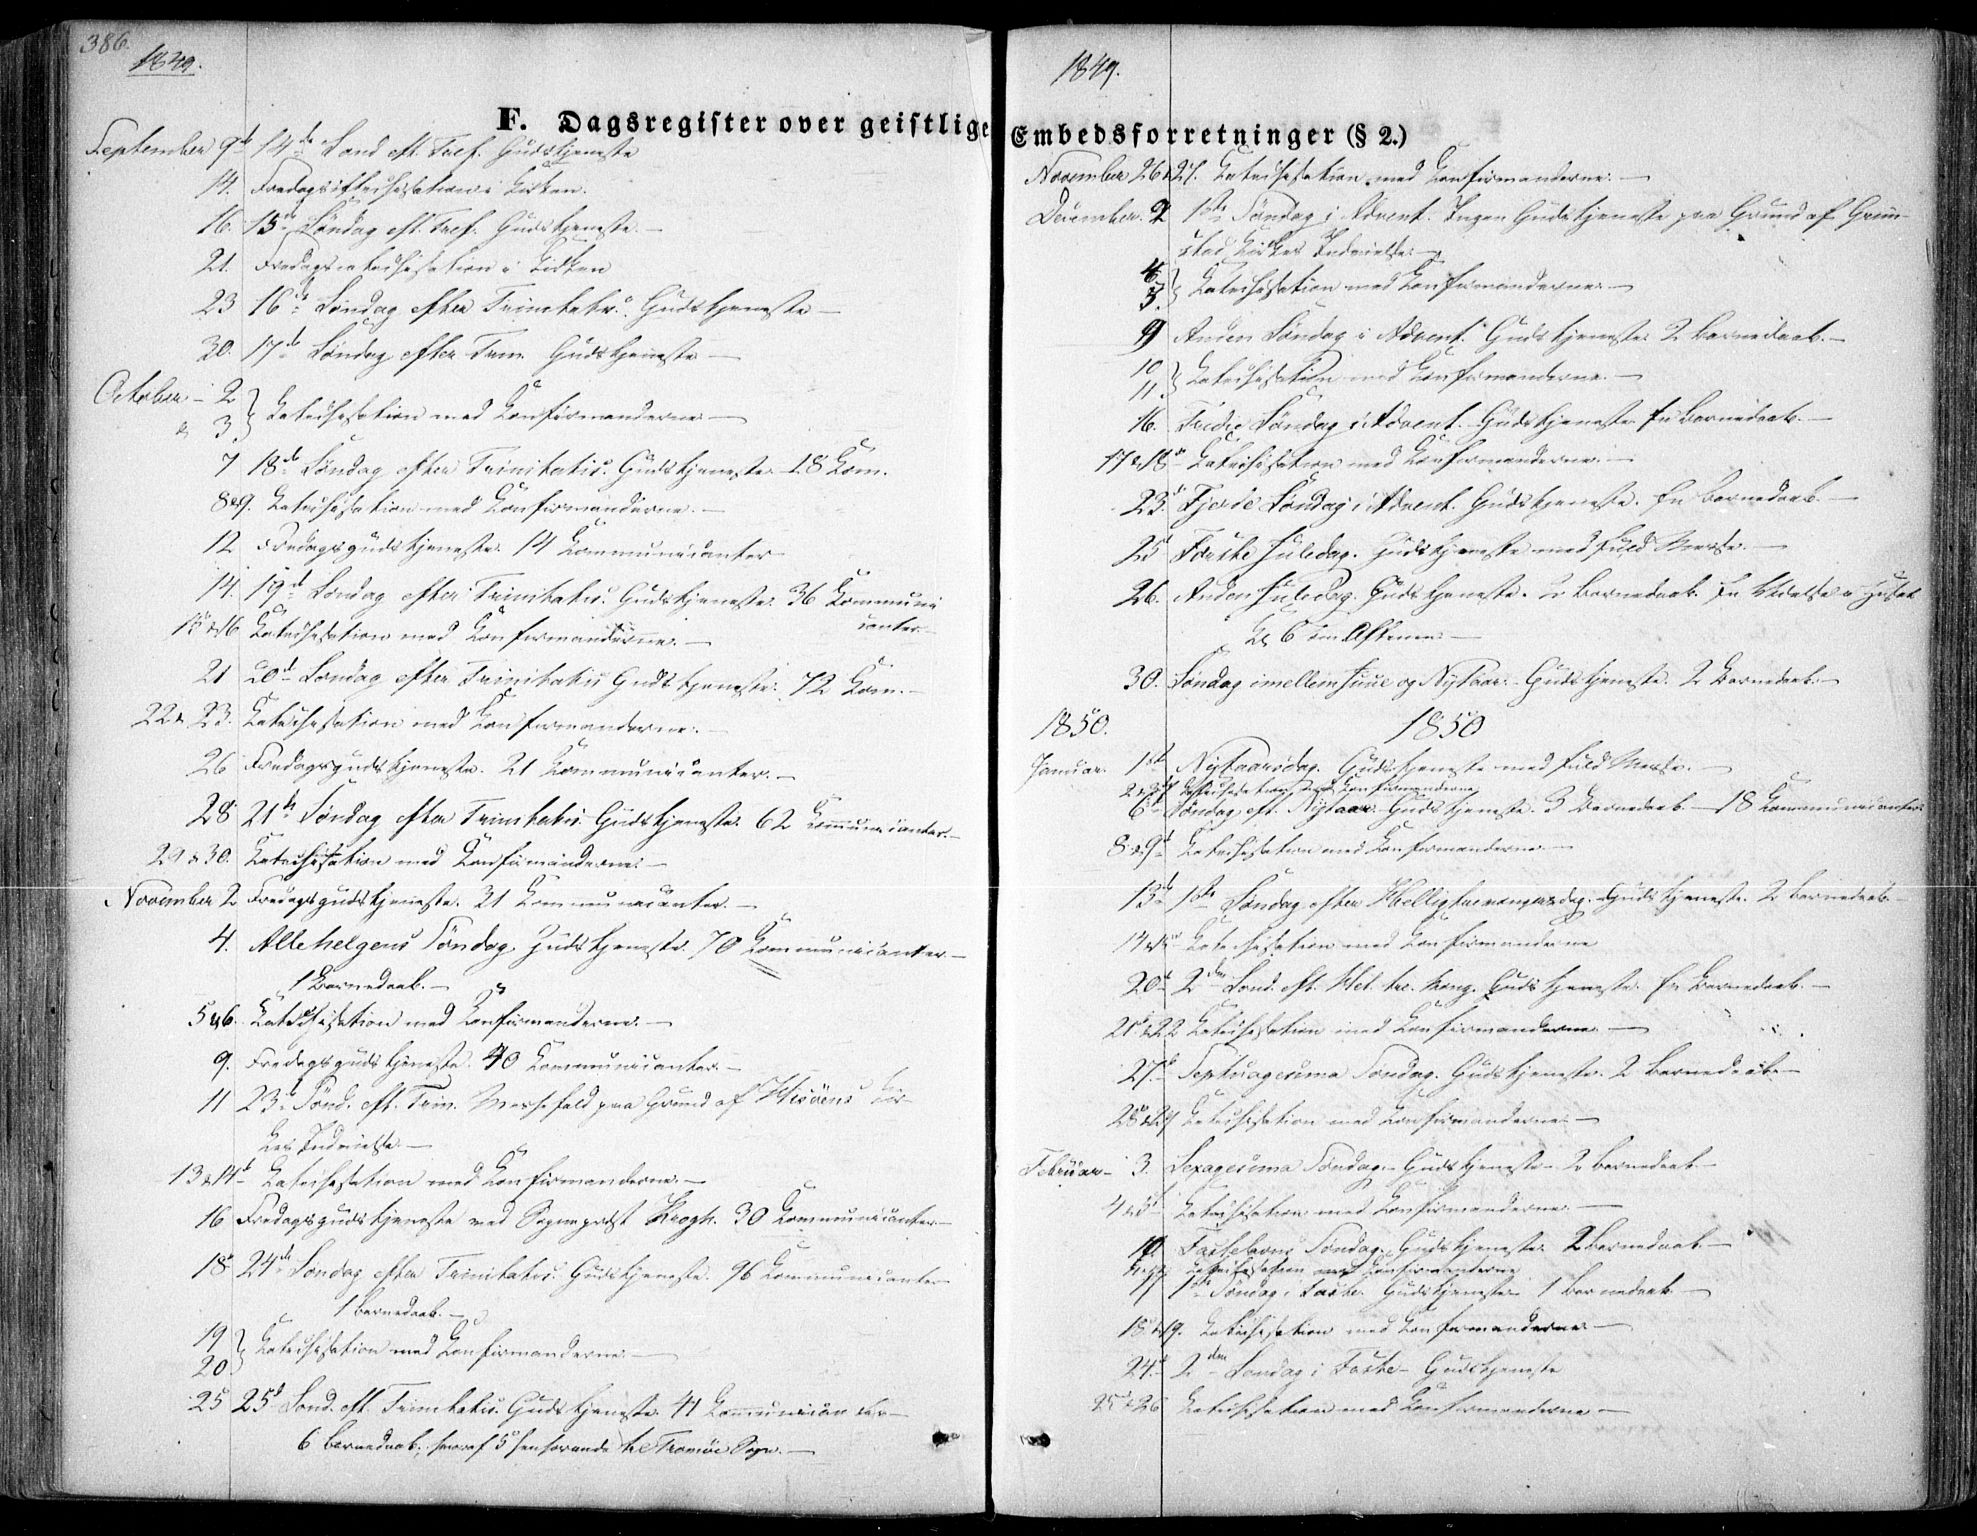 386.
1849.
F. Dagsregister over geistlige
September 9d 14de Sønd. eft. Tref. Gudstjeneste
14. Fredagscatechisation i Kirken.
16. 15de Søndag eft. Tref. Gudstjeneste. —
21. Fredagscatechisation i Kirken
23 16de Søndag efter Trinitatis. Gudstjeneste —
30. 17de Søndag efter Trin. Gudstjeneste —
October — 2
& 3 } Catechisation med Confirmanderne —
7 18de Søndag efter Trinitatis. Gudstjeneste 18 Com.
8&9. Catechisation med Confirmanderne. —
12 Fredagsgudstjeneste. 14 Communicanter
14. 19de Søndag efter Trinitatis. Gudstjeneste. 36 Communi
canter —
15&16 Catechisation med Confirmanderne. —
21 20de Søndag efter Trinitatis Gudstjeneste. 72 Com. —
22& 23. Catechisation med Confirmanderne. —
26 Fredagsgudstjeneste. 21 Communicanter. —
28 21de Søndag efter Trinitatis. Gudstjeneste 62 Communicanter. —
29 & 30. Catechisation med Confirmanderne. —
November 2 Fredagsgudstjeneste. 31 Communicanter. —
4. Allehelgens Søndag. Gudstjeneste. 70 Communicanter —
1 Barnedaab. —
5&6. Catechisation med Confirmanderne. —
9. Fredagsgudstjeneste. 40 Communicanter. —
11 23de Sønd. eft. Trin. Messefald paa Grund af Hisøens Kir-
kes Indvielse. —
13&14d Catechisation med Confirmanderne. —
16 Fredagsgudstjeneste ved Sognepræst Krogh. 30 Communicanter —
18d 24de Søndag efter Trinitatis. Gudstjeneste. 96 Communicanter
1 Barnedaab. —
19
20 } Catechisation med Confirmanderne. —
25 25d Sønd. eft. Trinitatis. Gudstjeneste 41 Communicanter —
6 Barnedaab, hvoraf 5 henhørende til Tromøe Sogn. —
1849.
Embedsforretninger (§ 2.)
November 26&27. Catechisation med Confirmanderne. —
December. 2 1ste Søndag i Advent. Ingen Gudstjeneste paa Grund af Grim-
stad Kirkes Indvielse. —
4
5. } Catechisation med Confirmanderne. —
9 Anden Søndag i Advent. Gudstjeneste 2 Barnedaab. —
10
11 } Catechisation med Confirmanderne. —
16. Tredie Søndag i Advent. Gudstjeneste En Barnedaab. —
17&18d Catechisation med Confirmanderne. —
23d Fjerde Søndag i Advent. Gudstjeneste. En Barnedaab. —
25 Første Juledag. Gudstjeneste med fuld Messe. —
26. Anden Juledag. Gudstjeneste. 2 Barnedaab. En
Kl 6 om Aftenen. —
30. Søndag imellem Juul og Nytaar. — Gudstjeneste. 2 Barnedaab. —
1850. 1850
Januar. 1ste Nytaarsdag. Gudstjeneste med fuld Messe. —
Catechisation med Confirmanderne
6d Søndag eft. Nytaar. Gudstjeneste. 3 Barnedaab. — 18 Communicanter
8&9d Catechisation med Confirmanderne. —
13d 1ste Søndag efter Helligtrekongersdag. Gudstjeneste. 2 Barnedaab. —
14&15 Catechisation med Confirmanderne
20d 2den Sønd. eft. Hel. tre. Kong. Gudstjeneste. En Barnedaab. —
21&22 Catechisation med Confirmanderne. —
27d Septuagesima Søndag. Gudstjeneste. 2 Barnedaab —
28&29 Catechisation med Confirmanderne. —
Februar — 3. Sexagesima Søndag. Gudstjeneste — 2 Barnedaab —
4&5d Catechisation med Confirmanderne. —
10. Fastelavns Søndag. Gudstjeneste 2 Barnedaab —
Catechisation med Confirmanderne
17 1ste Søndag i Faste. Gudstjeneste 1 Barnedaab —
18&19. Catechisation med Confirmanderne —
24d 2den Søndag i Faste — Gudstjeneste
25&26 Catechisation med Confirmanderne —